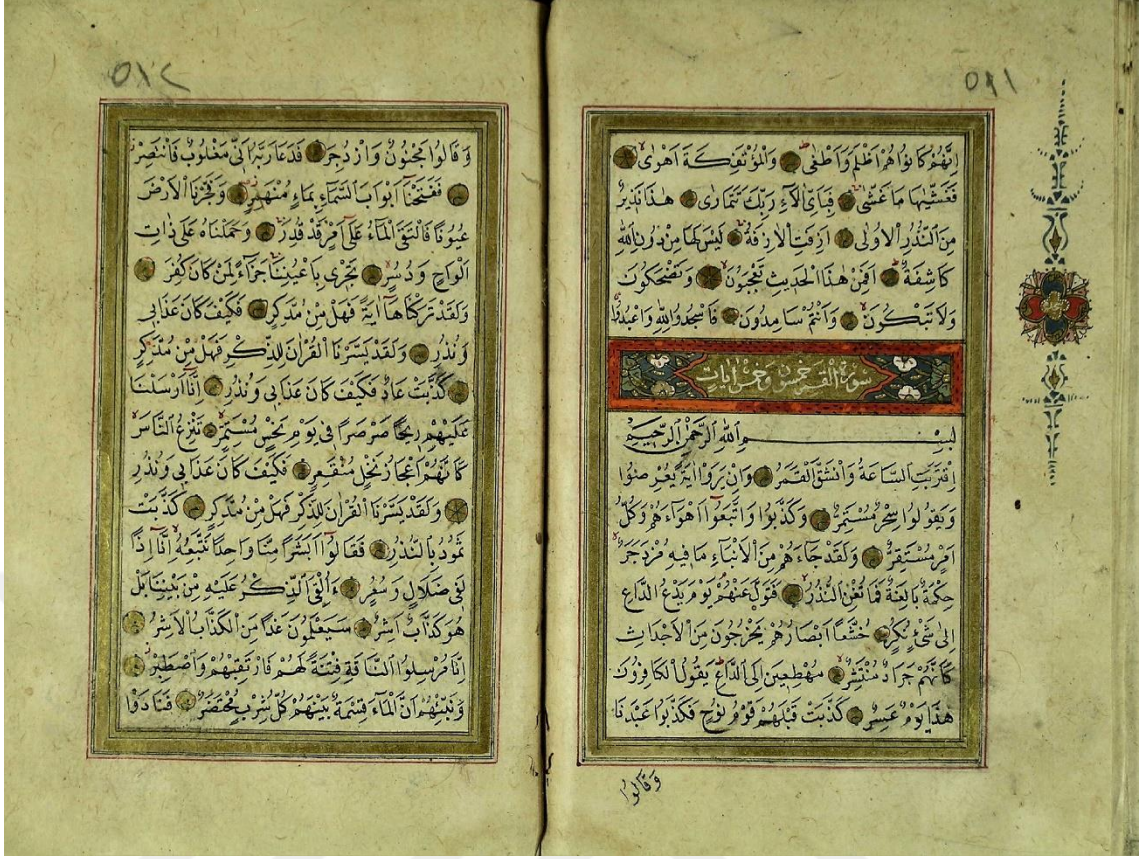 ٥١١
اِنَّهُمْ كَانُوا هُمْ اَظْلَمَ وَاَطْغٰى وَالْمُؤْتَفِكَةَ اَهْوٰى
فَغَشّٰيهَا مَا غَشّٰى فَبِاَيِّ اٰلَاءِ رَبِّكَ تَتَمَارٰى هٰذَا نَذِيرٌ
مِنَ النُّذُرِ الْاُولٰى اَزِفَتِ الْاٰزِفَةُ لَيْسَ لَهَا مِنْ دُونِ اللّٰهِ
كَاشِفَةٌ اَفَمِنْ هٰذَا الْحَدِيثِ تَعْجَبُونَ وَتَضْحَكُونَ
وَلَا تَبْكُونَ وَاَنْتُمْ سَامِدُونَ فَاسْجُدُوا لِلّٰهِ وَاعْبُدُوا
سورة القمر خمسون وخمس ايات
بِسْمِ اللّٰهِ الرَّحْمٰنِ الرَّحِيمِ
اِقْتَرَبَتِ السَّاعَةُ وَانْشَقَّ الْقَمَرُ وَاِنْ يَرَوْا اٰيَةً يُعْرِضُوا
وَيَقُولُوا سِحْرٌ مُسْتَمِرٌّ وَكَذَّبُوا وَاتَّبَعُوا اَهْوَاءَهُمْ وَكُلُّ
اَمْرٍ مُسْتَقِرٌّ وَلَقَدْ جَاءَهُمْ مِنَ الْاَنْبَاءِ مَا فِيهِ مُزْدَجَرٌ
حِكْمَةٌ بَالِغَةٌ فَمَا تُغْنِ النُّذُرُ فَتَوَلَّ عَنْهُمْ يَوْمَ يَدْعُ الدَّاعِ
اِلٰى شَيْءٍ نُكُرٍ خُشَّعًا اَبْصَارُهُمْ يَخْرُجُونَ مِنَ الْاَجْدَاثِ
كَاَنَّهُمْ جَرَادٌ مُنْتَشِرٌ مُهْطِعِينَ اِلَى الدَّاعِ يَقُولُ الْكَافِرُونَ
هٰذَا يَوْمٌ عَسِرٌ كَذَّبَتْ قَبْلَهُمْ قَوْمُ نُوحٍ فَكَذَّبُوا عَبْدَنَا
وَقَالُوا
٥١٢
وَقَالُوا مَجْنُونٌ وَازْدُجِرَ فَدَعَا رَبَّهُ اَنِّي مَغْلُوبٌ فَانْتَصِرْ
فَفَتَحْنَا اَبْوَابَ السَّمَاءِ بِمَاءٍ مُنْهَمِرٍ وَفَجَّرْنَا الْاَرْضَ
عُيُونًا فَالْتَقَى الْمَاءُ عَلٰى اَمْرٍ قَدْ قُدِرَ وَحَمَلْنَاهُ عَلٰى ذَاتِ
اَلْوَاحٍ وَدُسُرٍ تَجْرِي بِاَعْيُنِنَا جَزَاءً لِمَنْ كَانَ كُفِرَ
وَلَقَدْ تَرَكْنَاهَا اٰيَةً فَهَلْ مِنْ مُدَّكِرٍ فَكَيْفَ كَانَ عَذَابِي
وَنُذُرِ وَلَقَدْ يَسَّرْنَا الْقُرْاٰنَ لِلذِّكْرِ فَهَلْ مِنْ مُدَّكِرٍ
كَذَّبَتْ عَادٌ فَكَيْفَ كَانَ عَذَابِي وَنُذُرِ اِنَّا اَرْسَلْنَا
عَلَيْهِمْ رِيحًا صَرْصَرًا فِي يَوْمِ نَحْسٍ مُسْتَمِرٍّ تَنْزِعُ النَّاسَ
كَاَنَّهُمْ اَعْجَازُ نَخْلٍ مُنْقَعِرٍ فَكَيْفَ كَانَ عَذَابِي وَنُذُرِ
وَلَقَدْ يَسَّرْنَا الْقُرْاٰنَ لِلذِّكْرِ فَهَلْ مِنْ مُدَّكِرٍ كَذَّبَتْ
ثَمُودُ بِالنُّذُرِ فَقَالُوا اَبَشَرًا مِنَّا وَاحِدًا نَتَّبِعُهُ اِنَّا اِذًا
لَفِي ضَلَالٍ وَسُعُرٍ ءَاُلْقِيَ الذِّكْرُ عَلَيْهِ مِنْ بَيْنِنَا بَلْ
هُوَ كَذَّابٌ اَشِرٌ سَيَعْلَمُونَ غَدًا مَنِ الْكَذَّابُ الْاَشِرُ
اِنَّا مُرْسِلُوا النَّاقَةِ فِتْنَةً لَهُمْ فَارْتَقِبْهُمْ وَاصْطَبِرْ
وَنَبِّئْهُمْ اَنَّ الْمَاءَ قِسْمَةٌ بَيْنَهُمْ كُلُّ شِرْبٍ مُحْتَضَرٌ فَنَادَوْا